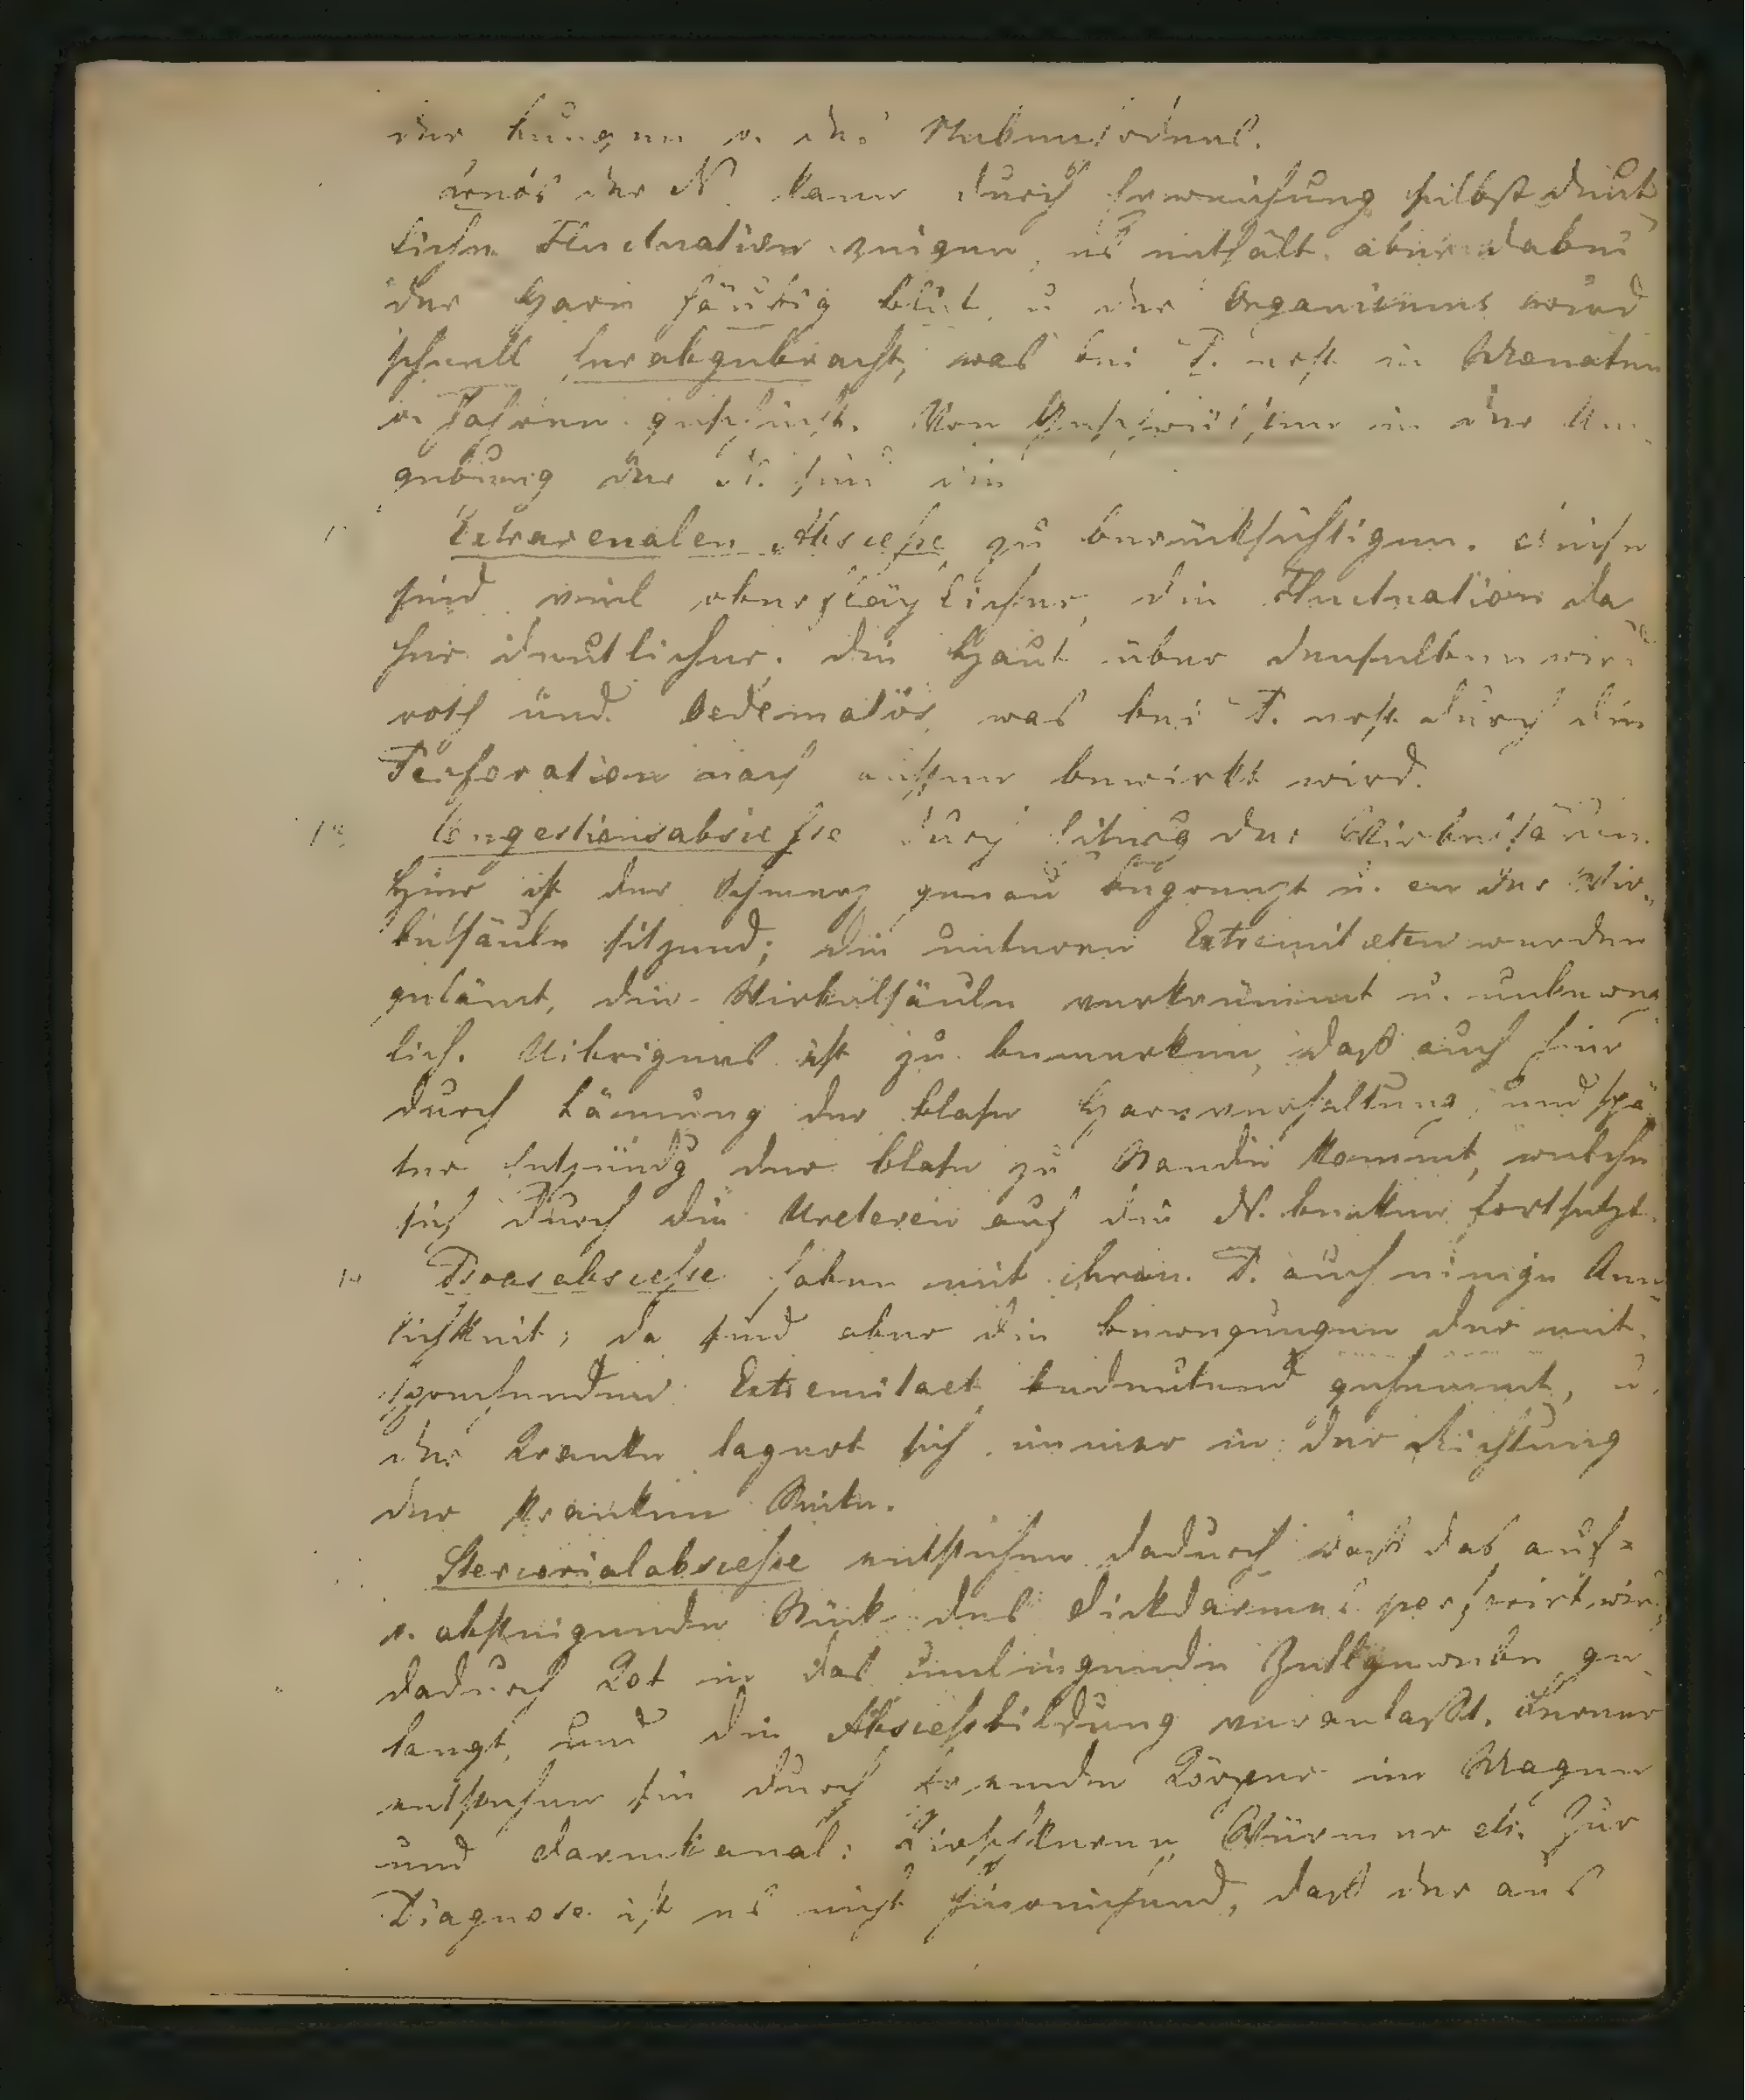 der Lungen u. des
der N. kann durch Erweichung selbst deut
liche Fluctuation zeigen, es enthält aber dabei
der Harn häufig Blut, u der Organismus wird
schnell herabgebracht, was bei P. erst in Monaten
u. Jahren geschieht. Von Geschwülsten in der Um
gebung der N. sind die
Extrarenalen Abscesse zu berücksichtigen. Diese
sind viel oberflächlicher, die Fluctuation da
her deutlicher. Die Haut über denselben wird
roth und oedematös, was bei P. erst durch die
Perforation nach aussen bewirkt wird.
Congestionsabscesse durch der Wirbelsäule.
Hier ist der Schmerz genau begrenzt u. an der Wir
belsäule sitzend; die unteren Extremitæten werden
gelämt, die Wirbelsäule verkrümmt u. unbeweg
lich. Uibrigens ist zu bemerken, daß auch hier
durch Lämung der Blase Harnverhaltung und spä
ter Entzündg der Blase zu Stande kommt, welche
sich durch die Ureteren auf die N. becken fortsetzt.
Psoasabscesse haben mit chron. P. auch einige Aen
lichkeit; da sind aber die Bewegungen der ent
sprechenden Extremitaet bedeutend gehemmt, u.
der Kranke lagert sich immer in der Richtung
der kranken Seite.
Stercorialabscesse entstehen dadurch daß das auf=
u. absteigende Stück des Dickdarmes perforirt wird
dadurch Kot in das umliegende Zellgewebe ge
langt, und die Absceßbildung veranlaßt. Ferner
entstehen sie durch fremde Körper im Magen
und Darmkanal: Kirschkerne, Würmer etc. Zur
Diagnose ist es nicht hinreichend, daß der aus